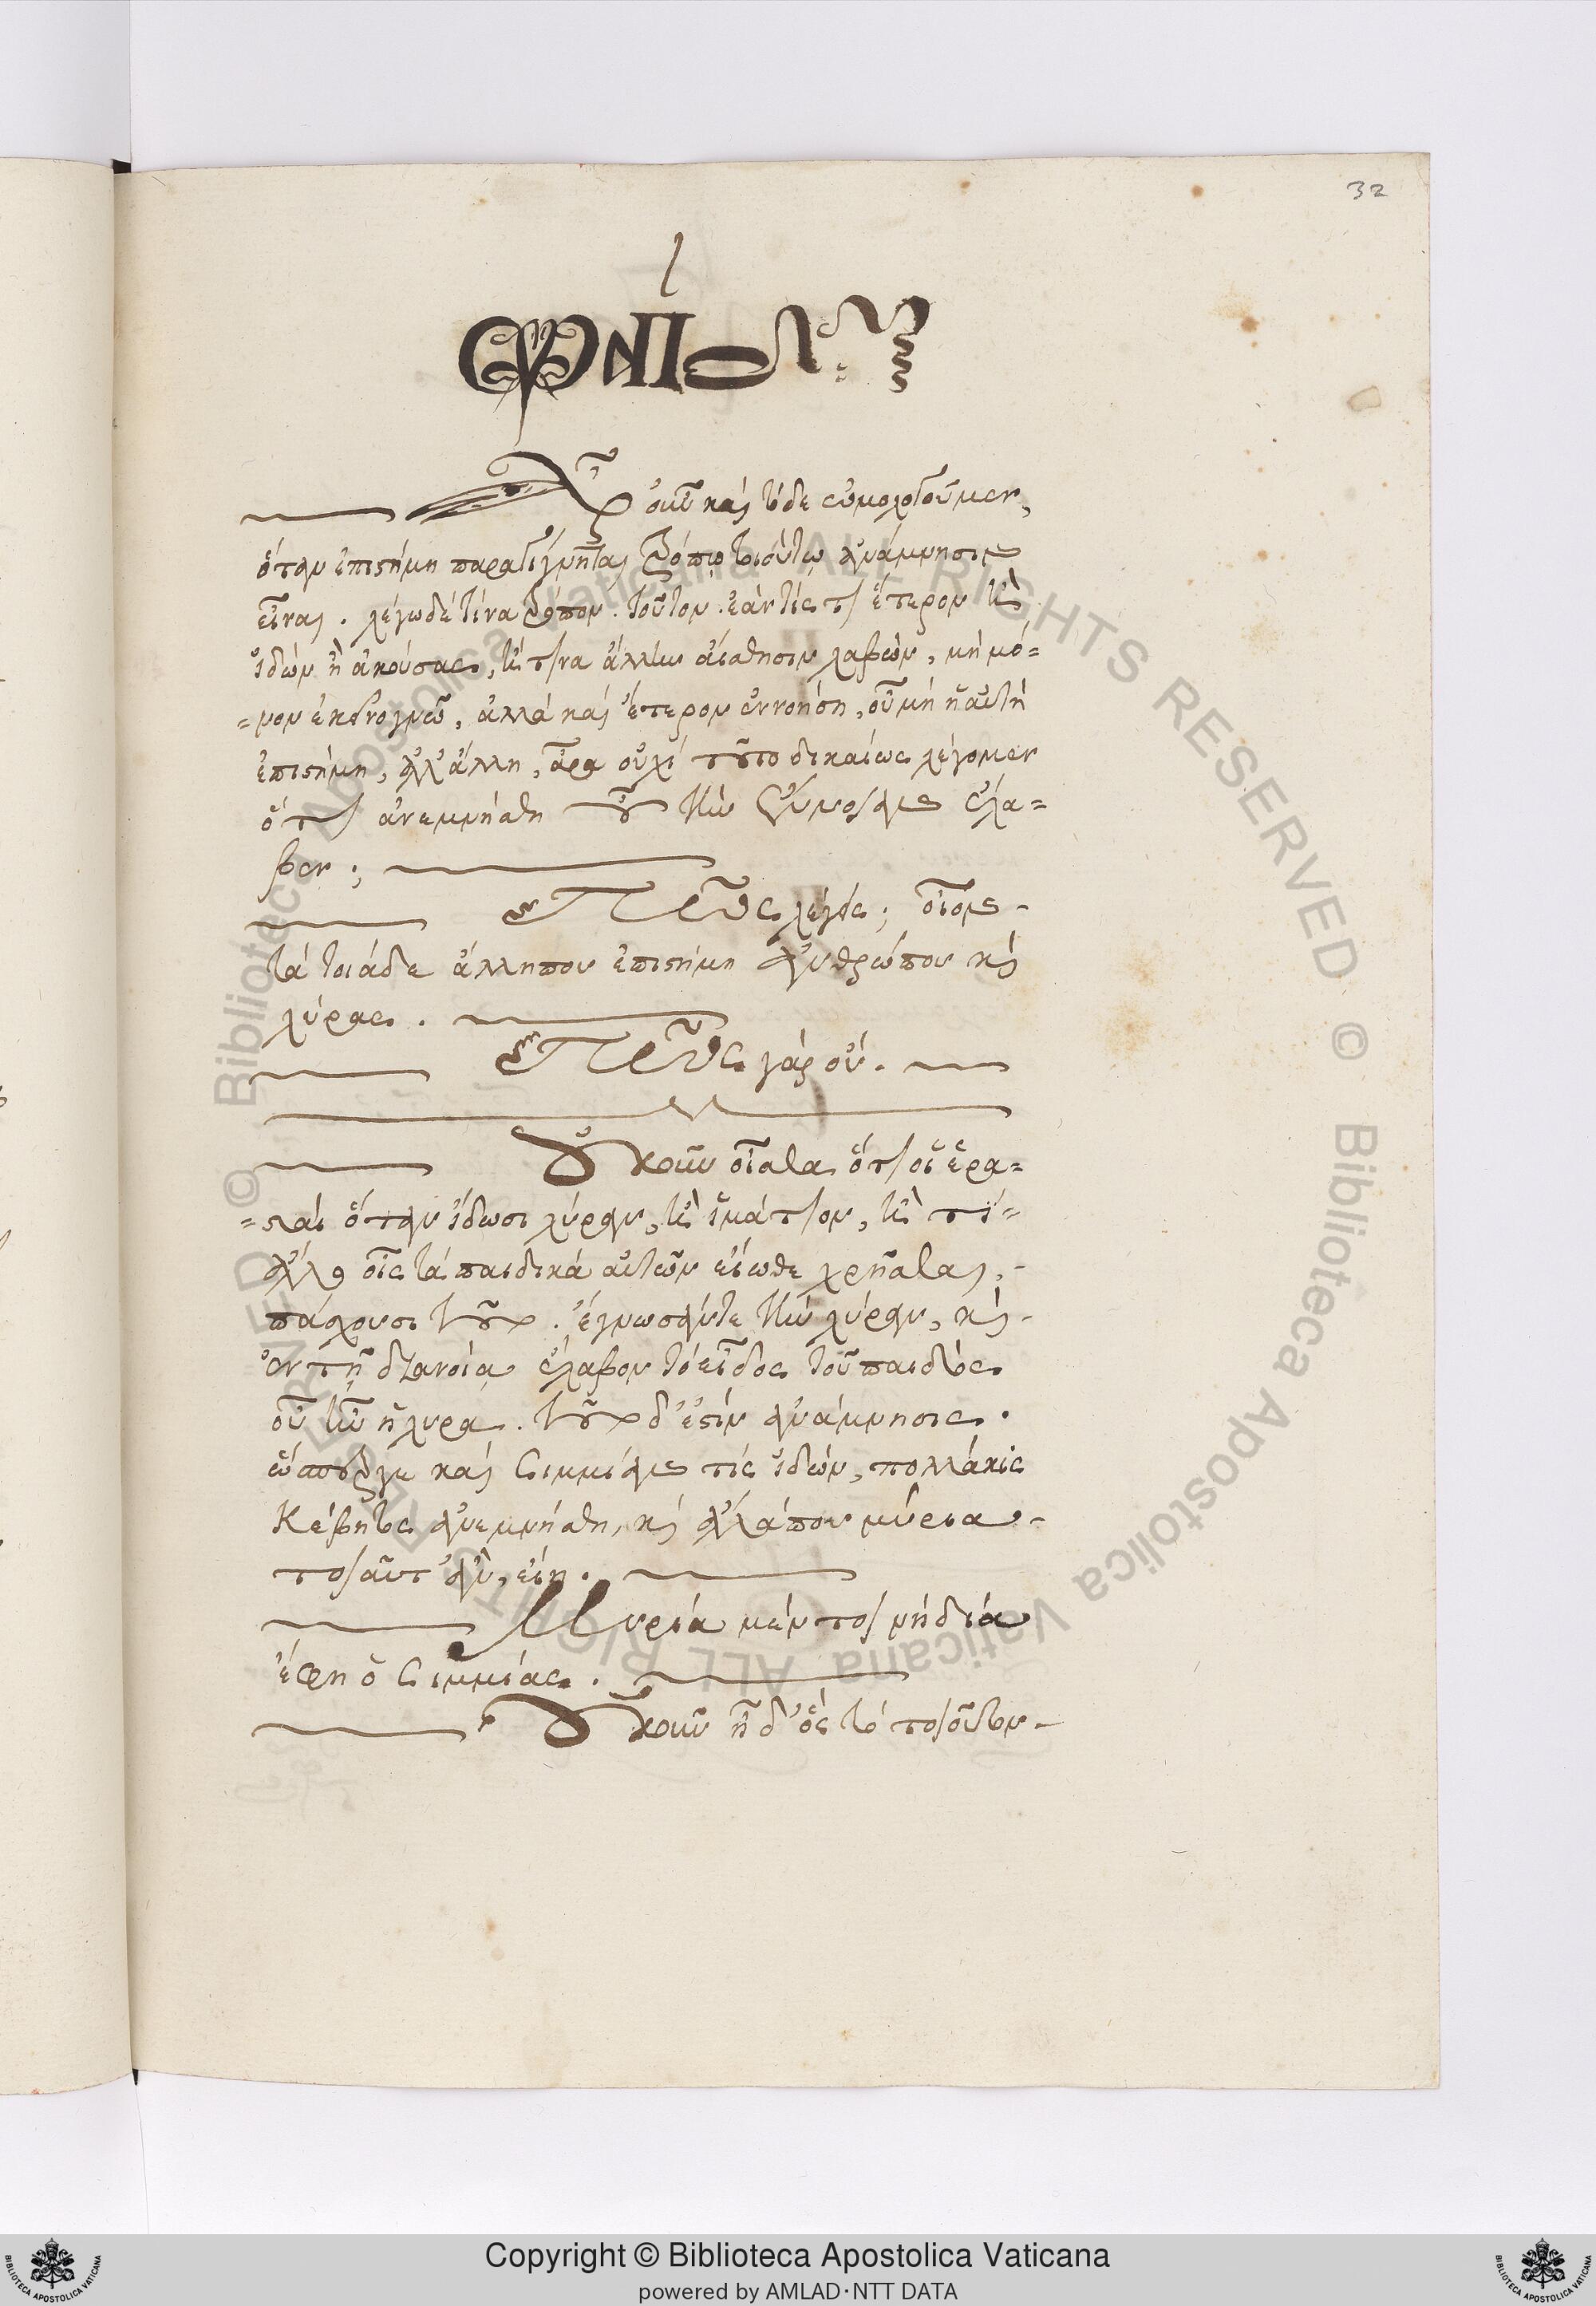 32
Ἆρ' οὖν καὶ τόδε ὁμολογοῦμεν,
ὅταν ἐπιστήμη παραγίγνηται τρόπῳ τοιούτῳ ἀνάμνησιν
εἶναι. λέγω δέ τινα τρόπον. τοῦτον. ἐάν τίς τι ἕτερον ἢ
ἰδὼν ἢ ἀκούσας, ἤ τινα ἄλλην αἴσθησιν λαβὼν, μὴ μό=
=νον ἐκεῖνο γνῷ, ἀλλὰ καὶ ἕτερον ἐννοήσῃ, οὗ μὴ ἡ αὐτὴ
ἐπιστήμη, ἀλλ' ἄλλη, ἆρα οὐχὶ τοῦτο δικαίως λέγομεν
ὅτι ἀνεμνήσθη οὗ τὴν ἔννοιαν ἔλα=
βεν;
Πῶς λέγεις; οἷον
τὰ τοιάδε ἄλλη που ἐπιστήμη ἀνθρώπου καὶ
λύρας.
Πῶς γὰρ οὔ.
Οὐκοῦν οἶσθα ὅτι οἱ ἐρα=
=σταὶ ὅταν ἴδωσι λύραν, ἢ ἱμάτιον, ἤ τι
ἄλλο οἷς τὰ παιδικὰ αὐτῶν εἴωθε χρῆσθαι,
πάσχουσι τοῦτο. ἔγνωσάν τε τὴν λύραν, καὶ
ἐν τῇ διανοίᾳ ἔλαβον τὸ εἶδος τοῦ παιδὸς
οὗ ἦν ἡ λύρα. τοῦτο δ' ἐστὶν ἀνάμνησις.
ὥσπερ γε καὶ Σιμμίαν τὶς ἰδὼν, πολλάκις
Κέβητος ἀνεμνήσθη, καὶ ἄλλα που μύρια
τοιαῦτ' ἂν, εἴη.
Μυρία μέν τοι νὴ δία
ἔφη ὁ Σιμμίας.
Οὐκοῦν ἦ δ' ὃς τὸ τοιοῦτον
Copyright © Biblioteca Apostolica Vaticana
powered by AMLAD·NTT DATA